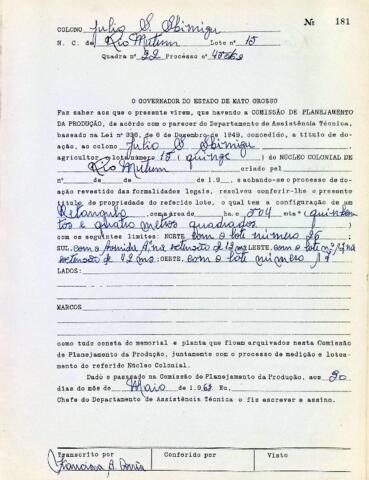 Nº 181
COLONO Julio S. Shimizu
N. C. de Rio Mutum Lote nº 15
Quadra nº 22 Processo nº
O GOVERNADOR DO ESTADO DE MATO GROSSO
Faz saber aos que o presente virem, que havendo a COMISSÃO DE PLANEJAMENTO
DA PRODUÇÃO, de acôrdo com o parecer do Departamento de Assistência Técnica,
baseado na Lei nº 336, de 6 de Dezembro de 1949, concedido, a título de do-
ação, ao colono Julio S. Shimizu
agricultor o lote número 15 (quinze) do NÚCLEO COLONIAL DE
Rio Mutum criado pel
nº de de de 1.9 e achando-se o processo de do-
ação revestido das formalidades legais, resolveu conferir-lhe o presente
título de propriedade do referido lote, o qual tem a configuração de um
Retangulo com a área de ha. e 504 mts² (quinhen
tos e quatro metros quadrados)
com os seguintes limites: NORTE com o lote número 26
SUL com a Avenida "A" na extensão de 12 ms LESTE com o lote nº na
extensão de 42 ms: OESTE com o lote número
LADOS:
MARCOS
como tudo consta do memorial e planta que ficam arquivados nesta Comissão
de Planejamento da Produção, juntamente com o processo de medição e lotea-
mento do referido Núcleo Colonial.
Dado e passado na Comissão de Planejamento da Produção, aos 20
dias do mês de Maio de 1.962 Eu,
Chefe do Departamento de Assistência Técnica o fiz escrever e assino.
Transcrito por Conferido por Visto
Francisca A.